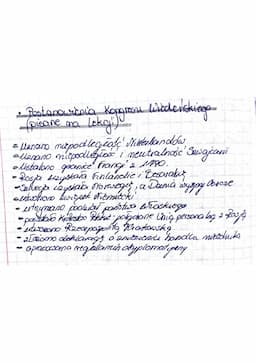 • Postanowienia Kongresu Wiedeńskiego
(pisane na lekcji)
- Uznano niepodległość Niderlandów
- Uznano niepodległość i neutralność Szwajcarii
- Ustalono granice Francji z 1790.
- Rosja uzyskała Finlandię i Besarabię
- Szwecja uzyskała Norwegię, a Dania wyspy Owcze
- utworzono Związek Niemiecki
- utrzymano podział państwa włoskiego
- powstało Królestwo Polskie połączone Unią personalną z Rosją
- utworzono Rzeczpospolitą Krakowską
- złożono deklarację o zniesieniu handlu niewolnik.
- opracowano regulamin dyplomatyczny